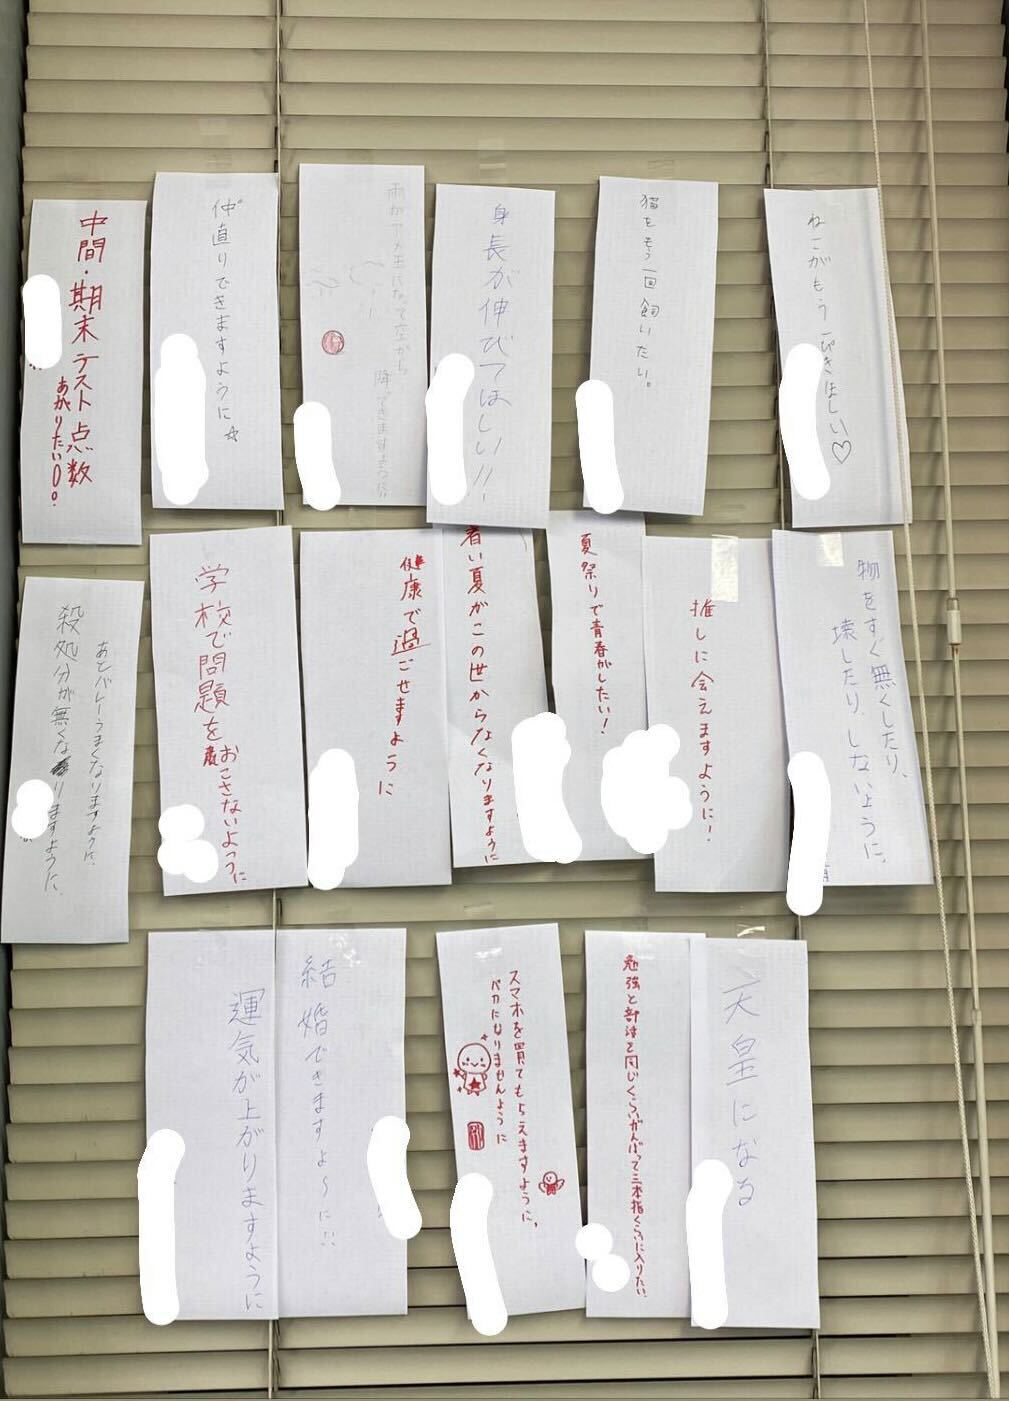 中間・期末テスト点数
あがりたい
仲直りできますように☆
雨がアメ玉になって空から
降ってきますように!!
身長が伸びてほしい!!
猫をもう一回飼いたい。
ねこがもう一ぴきほしい♡
あとバレーうまくなりますように、
殺処分が無くなりますように、
学校で問題を
おこさないように
健康で過ごせますように
暑い夏がこの世からなくなりますように
夏祭りで青春がしたい!
推しに会えますように!
物をすぐ無くしたり、
壊したり、しないように、
運気が上がりますように
結婚できますよ〜に!!
スマホを買てもらえますように。
バカになりませんように
勉強と部活を同じくらいがんばって三本指くらいに入りたい
天皇になる